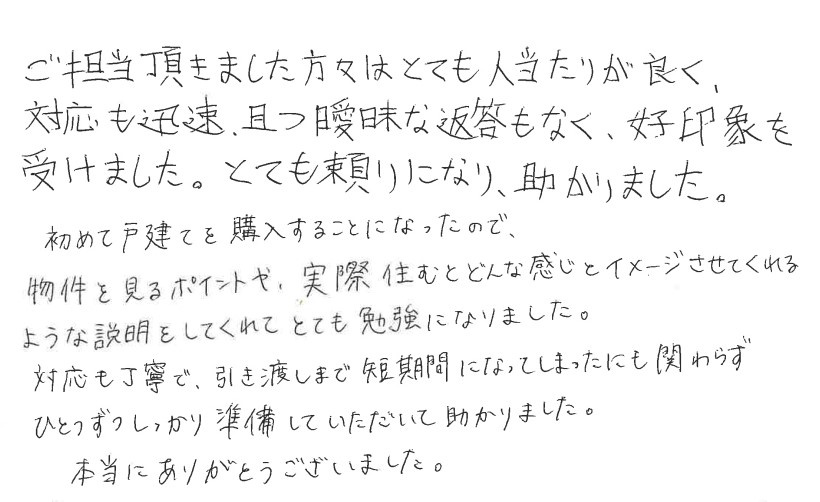 ご担当頂きました方々はとても人当たりが良く、
対応も迅速、且つ曖昧な返答もなく、好印象を
受けました。とても頼りになり、助かりました。
初めて戸建てを購入することになったので、
物件を見るポイントや、実際住むとどんな感じとイメージさせてくれる
ような説明をしてくれてとても勉強になりました。
対応も丁寧で、引き渡しまで短期間になってしまったにも関わらず
ひとつずつしっかり準備していただいて助かりました。
本当にありがとうございました。